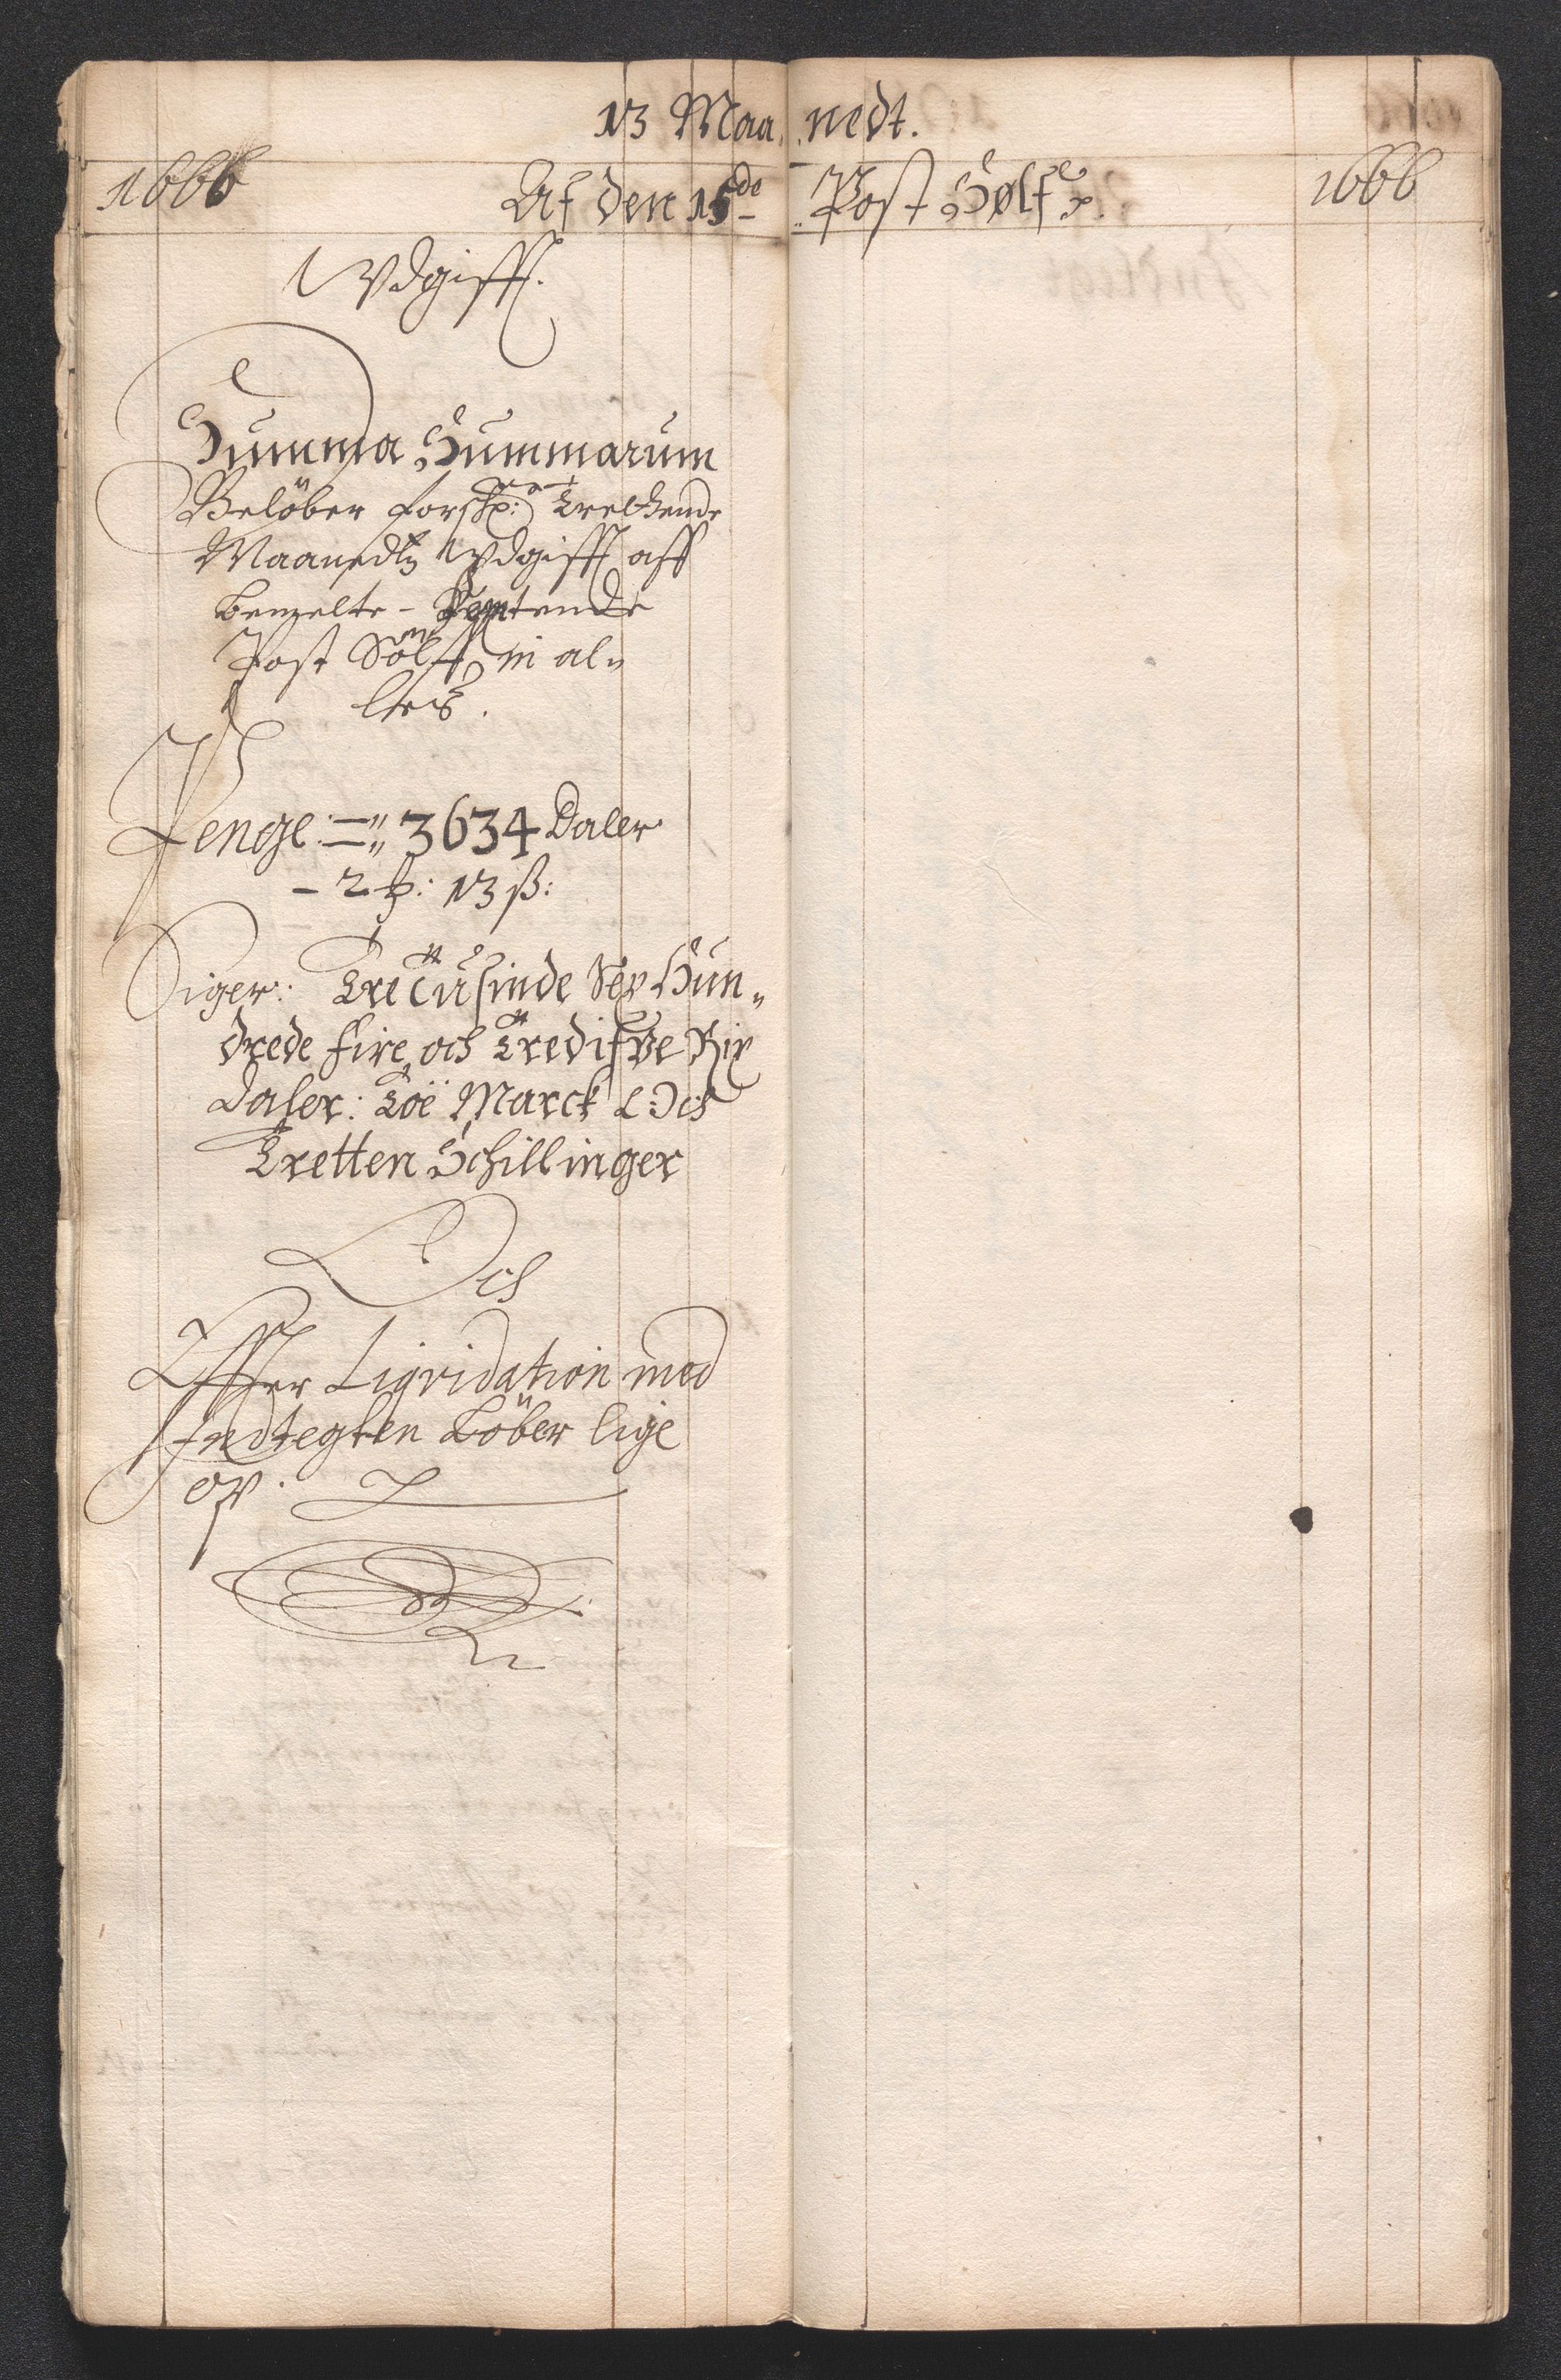 13 Maanedt.
1666 Af den 15de Post Sølf 1666
Udgifft.
Summa Summarum
Belöber forschr: Trettende
Maanedtz Udgifft aff
bemelte - Femtende
Post Sölff, in al„
les.
Penge: =„ 3634 Daler
- 2 ℔: 13 ß:
Siger: Tretusinde Sex Hun„
drede fire och Tredifve Rix
daler: Toe Marck Och
Tretten Schillinger
Och
Effter Liqvidation med
Indtegten Löber lige
op.